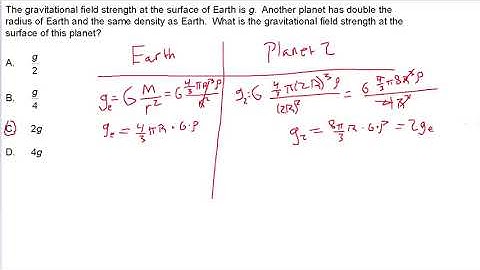 The gravitational field strength at the surface of Earth is g. Another planet has double the
radius of Earth and the same density as Earth. What is the gravitational field strength at the
surface of this planet?
Earth
Planet 2
A. g/2
B. g/4
C. 2g
D. 4g
g_e = G M/r² = G 4/3 πR³ρ/R²
g_e = 4/3 πR · G · ρ
g₂ = G 4/3 π(2R)³ρ/(2R)² = G 4/3 π8R³ρ/4R²
g₂ = 8π/3 R · G · ρ = 2g_e